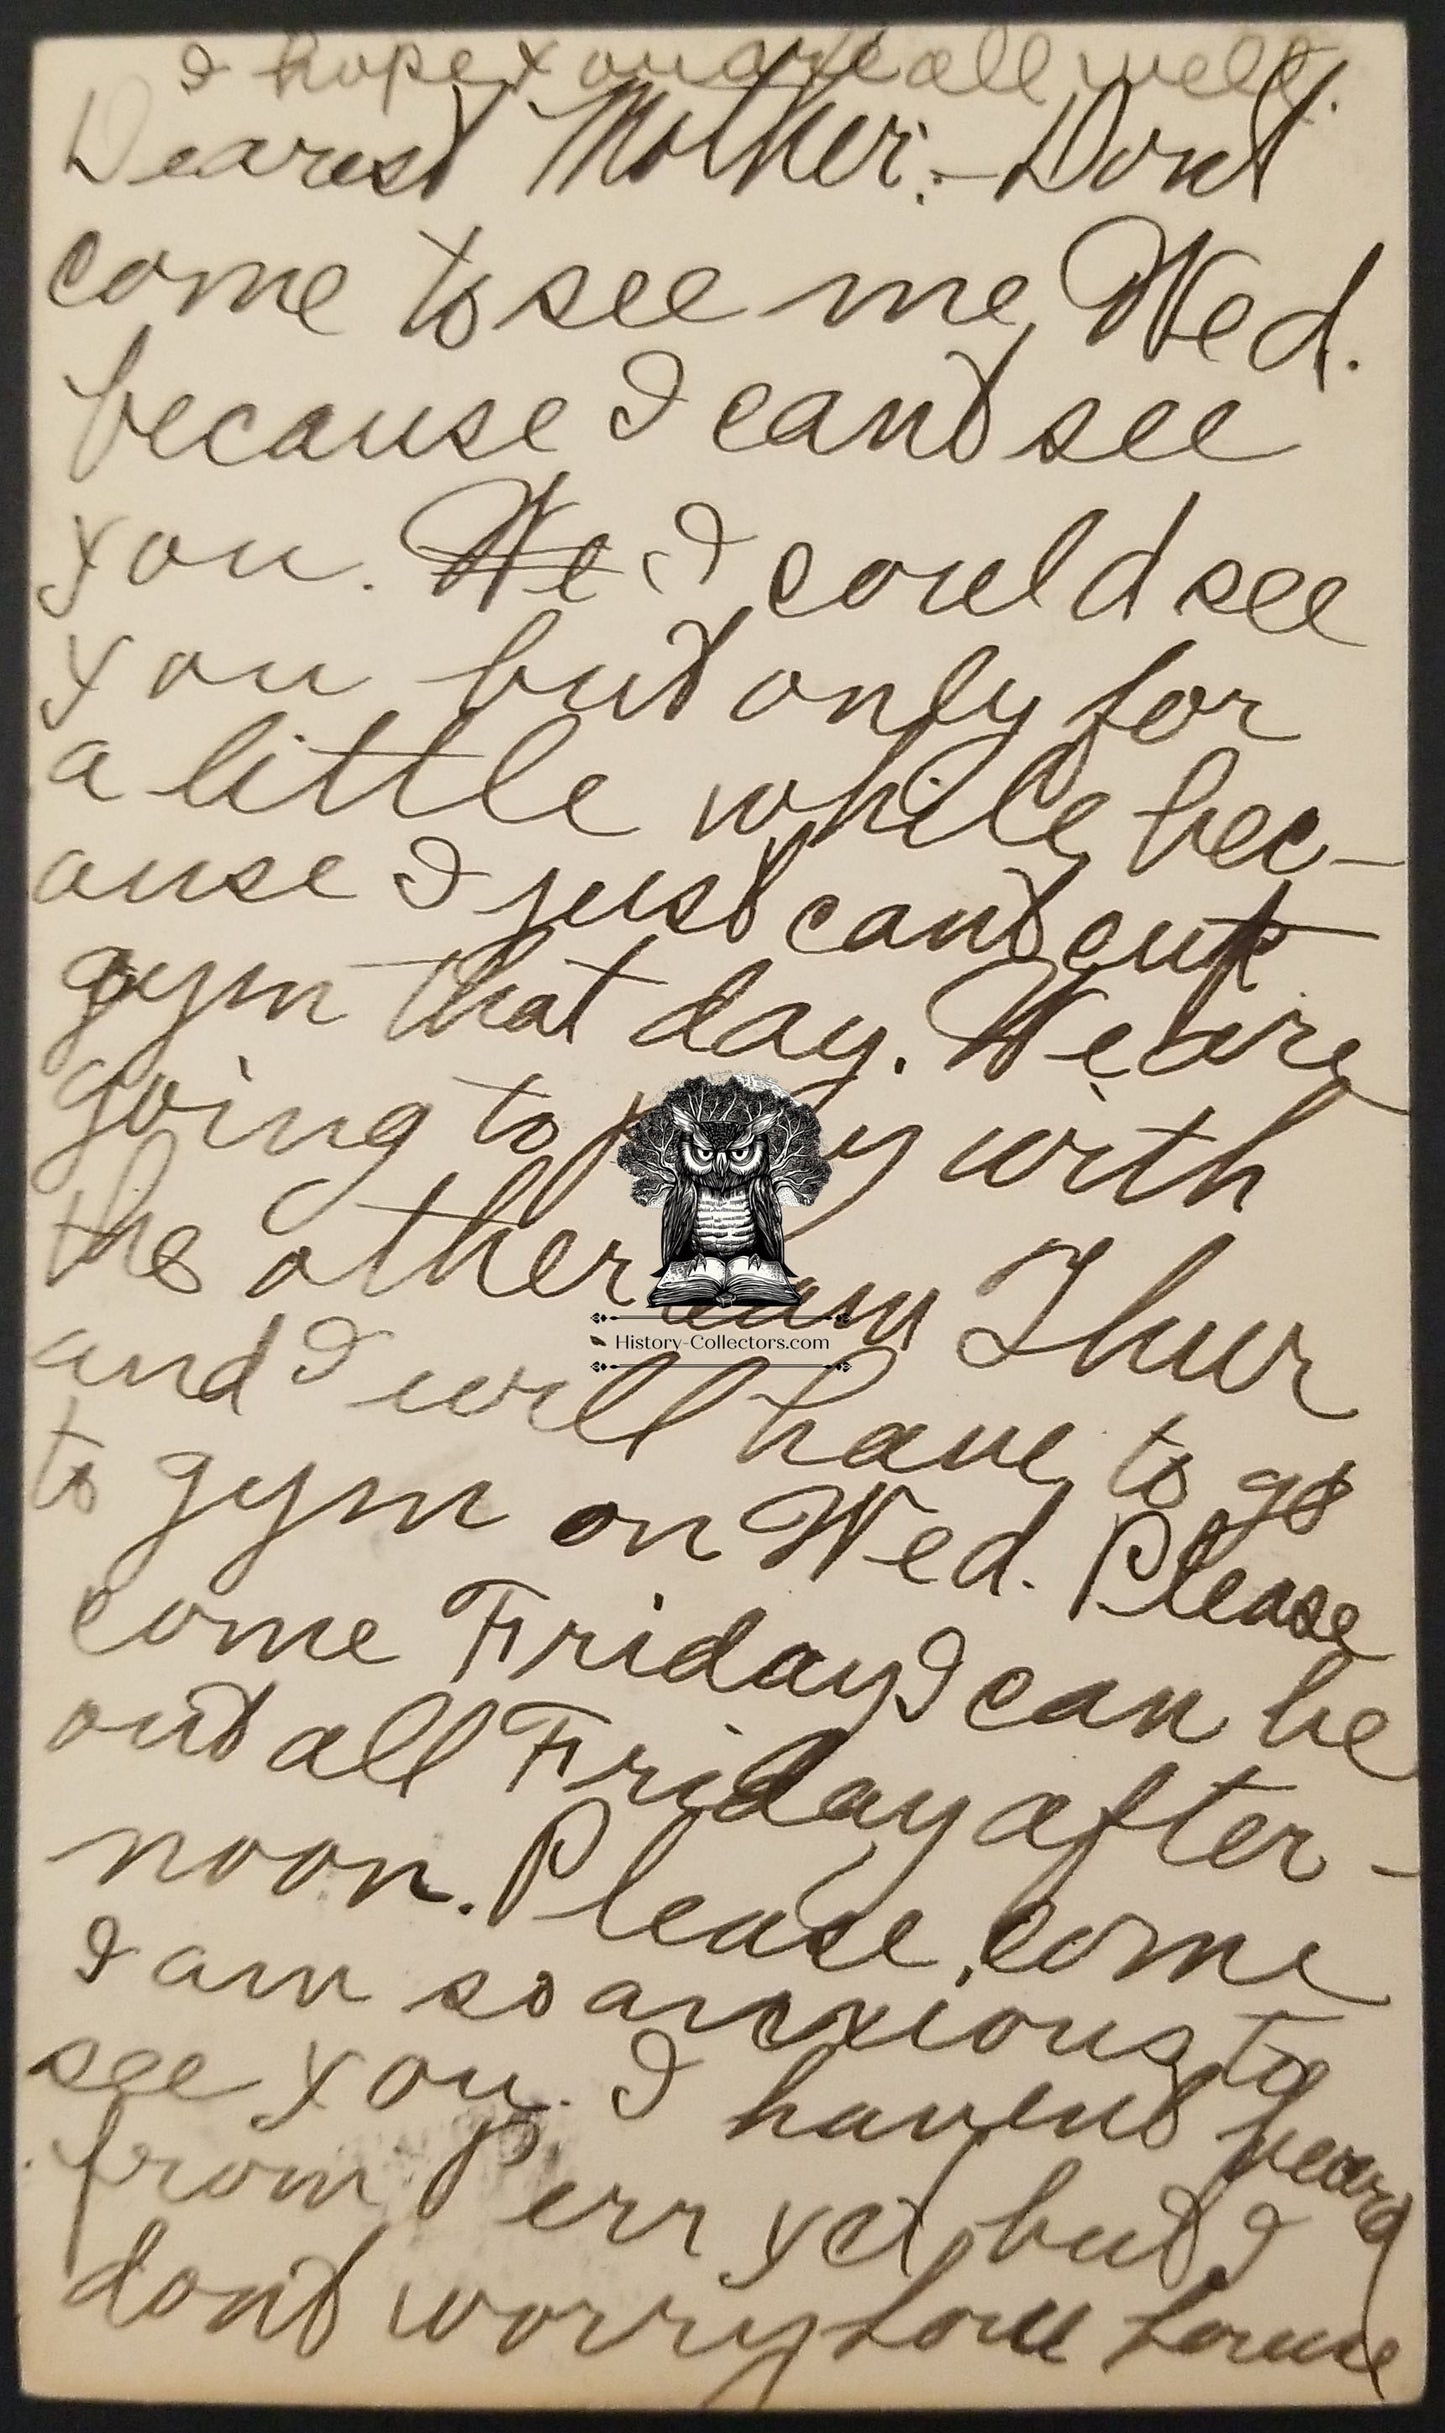 I hope you are all well.
Dearest Mother:- Dont
come to see me Wed.
because I cant see
you. We I could see
you but only for
a little while bec-
ause I just cant cut
gym that day. We are
going to with
the other Thur
and I will have to go
to gym on Wed. Please
come Friday I can be
out all Friday after-
noon. Please come
I am so anxious to
see you. I havent heard
from Perr yet but I
dont worry Love
History-Collectors.com